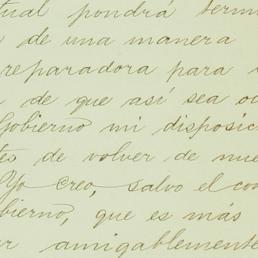 tual pondrá térmi
s de una manera
reparadora para
de que así sea
Gobierno mi disposic
tes de volver de nue
Yo creo, salvo el con
bierno, que es más
ar amigablemente